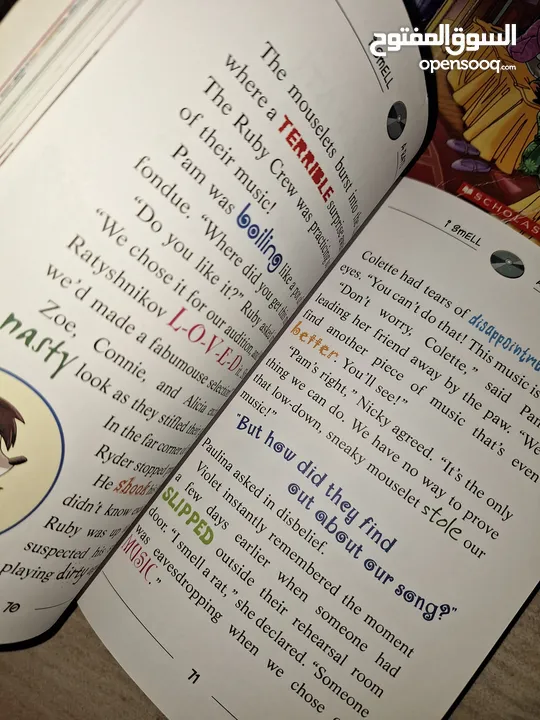 السوق المفتوح
opensooq.com
SMELL
The mouselets burst into
where a TERRIBLE surprise
The Ruby Crew was practicing
of their music!
Pam was boiling like a
fondue. "Where did you get this
"Do you like it?" Ruby asked
"We chose it for our audition
Ratyshnikov L-O-V-E-D
we'd made a fabumouse selection
Zoe, Connie, and Alicia
nasty look as they stilled their
In the far corner
Ryder stopped
He shook
didn't know
Ruby was up
suspected his
playing dirty
70
SCHOLAS
I SMELL
Colette had tears of disappointme
eyes. "You can't do that! This music is
"Don't worry, Colette," said Pam
leading her friend away by the paw. "We
find another piece of music that's even
better. You'll see!"
"Pam's right," Nicky agreed. "It's the only
thing we can do. We have no way to prove
that low-down, sneaky mouselet stole our
music!"
"But how did they find
out about our song?"
Paulina asked in disbelief.
Violet instantly remembered the moment
a few days earlier when someone had
SLIPPED outside their rehearsal room
door. "I smell a rat," she declared. "Someone
was eavesdropping when we chose
MUSIC."
71